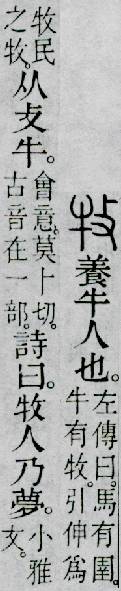 牧養牛人也。左傳曰。馬有圉。牛有牧。引伸爲
牧民之牧。从攴牛。會意。莫卜切。古音在一部。詩曰。牧人乃夢。小雅文。